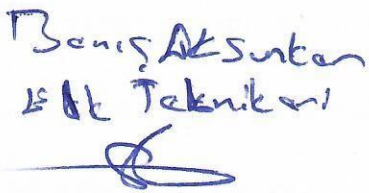 Barış Aksunkar
Elk Teknikeri